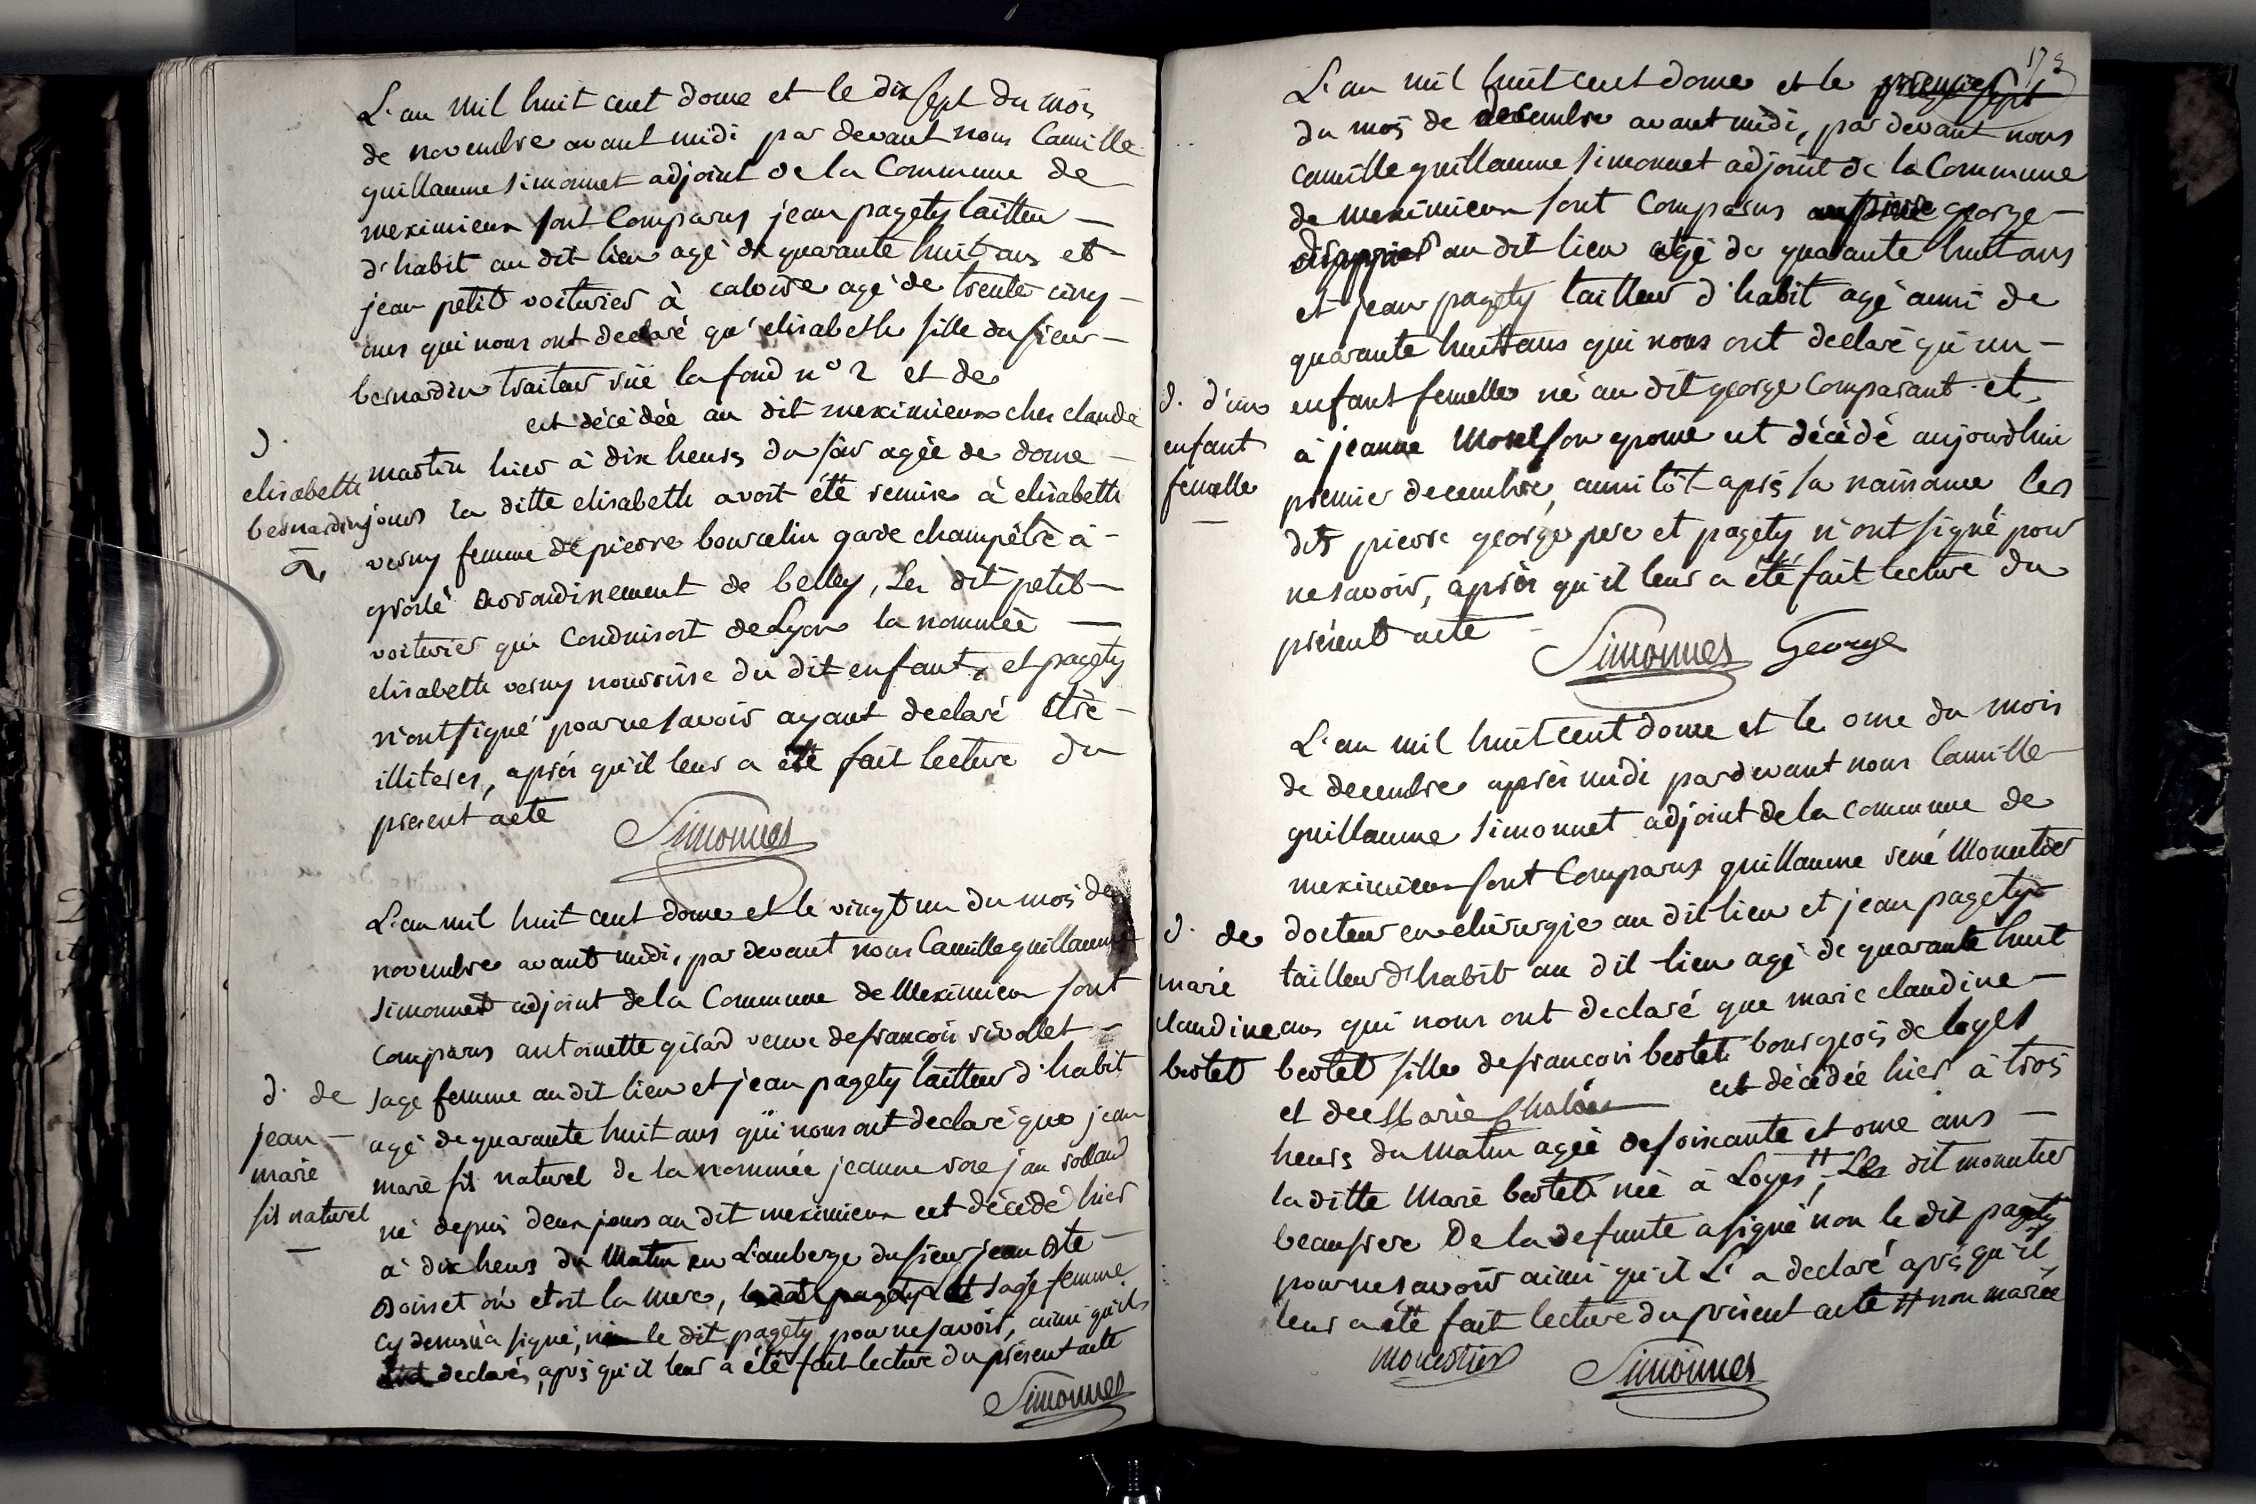 L'an mil huit cent douze et le dix sept du mois
de novembre avant midi par devant nous Camille
guillaume simonnet adjoint de la Commune de
meximieux sont Comparus jean pagety tailleu
d'habit au dit lieu agé de quarante huit ans et
jean petit voiturier à caloire agé de trente cinq
ans qui nous ont declaré qu'elisabeth fille du sieur
bernardin traiteur rüe la fond n° 2 et de
est décédée au dit meximieux chez claude
d.
elisabeth
bernardin
martin hier à dix heures du soir agée de douze
jours la ditte elisabeth avoit été remise à elisabeth
verny femme de pierre bourcelin garde champêtre à
groslé arrondissement de belley, Les dit petit
voiturier qui Conduisoit de Lyon la nommée
elisabeth verny nourrise du dit enfant, et pagety
n'ont signé pour ne savoir ayant declaré être
illiterés, après qu'il leur a été fait lecture du
present acte
Simonnet
L'an mil huit cent douze et le vingt un du mois de
novembre avant midi, par devant nous Camille guillaume
simonnet adjoint de la Commune de Meximieux sont
Comparus antoinette girard veuve de françois rivollet
d. de
jean
marie
fils naturel
sage femme au dit lieu et jean pagety tailleur d'habit
agé de quarante huit ans qui nous ont declaré que jean
marie fils naturel de la nommée jeanne rose
né depuis deux jours au dit meximieux est décédé hier
à dix heures du Matin en L'auberge du sieur jean
où etoit la mere, sage femme
cy dessus a signé, le dit pagety pour ne savoir, ainsi qu'ils
declarés, après qu'il leur a été fait lecture du présent acte
Simonnet
178
L'an mil huit cent douze et le premier
du mois de decembre avant midi, par devant nous
camille guillaume simonnet adjoint de la Commune
de meximieux sont Comparus pierre george
au dit lieu agé de quarante huit ans
et jean pagety tailleur d'habit agé aussi de
quarante huit ans qui nous ont declaré qu'un
d. d'un
enfant
femelle
enfant femelle né au dit george Comparant et
à jeanne Morel son epouse est décédé aujourdhui
premier decembre, aussitôt après sa naissance Les
dits pierre george pere et pagety n'ont signé pour
ne savoir, après qu'il leur a été fait lecture du
présent acte
Simonnet George
L'an mil huit cent douze et le onze du mois
de decembre après midi par devant nous Camille
guillaume simonnet adjoint de la commune de
meximieux sont Comparus guillaume rené Monestier
d. de
marie
claudine
bertet
docteur en chirurgie au dit lieu et jean pagety
tailleur d'habit au dit lieu agé de quarante huit
ans qui nous ont declaré que marie claudine
bertet fille de francois bertet bourgeois de loyes
et de Marie est décédée hier à trois
heures du Matin agée de soixante et onze ans
la ditte Marie bertet née à Loyes #, Les dit monestier
beaufrere De la defunte a signé non le dit pagety
pour ne savoir ainsi qu'il L'a declaré après qu'il
leur a été fait lecture du présent acte # non mariée
Monestier Simonnet